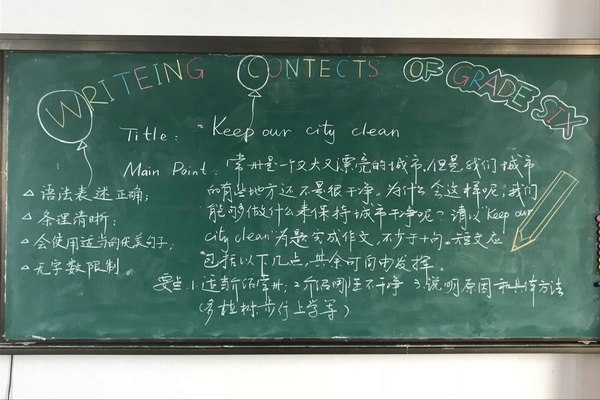 WRITEING CONTECTS OF GRADE SIX
Title: "Keep our city clean
Main Point: 常州是一个又大又漂亮的城市,但是我们城市
的有些地方还不是很干净。为什么会这样呢?我们
能够做什么来保持城市干净呢?请以"Keep our
city clean"为题完成作文,不少于十句。短文应
包括以下几点,其余可自由发挥
要点 1. 介绍常州; 2.介绍哪里不干净 3.说明原因和具体方法
(多植树 步行上学等)
△ 语法表述正确;
△ 条理清晰;
△ 会使用适当的优美句子;
△ 无字数限制。